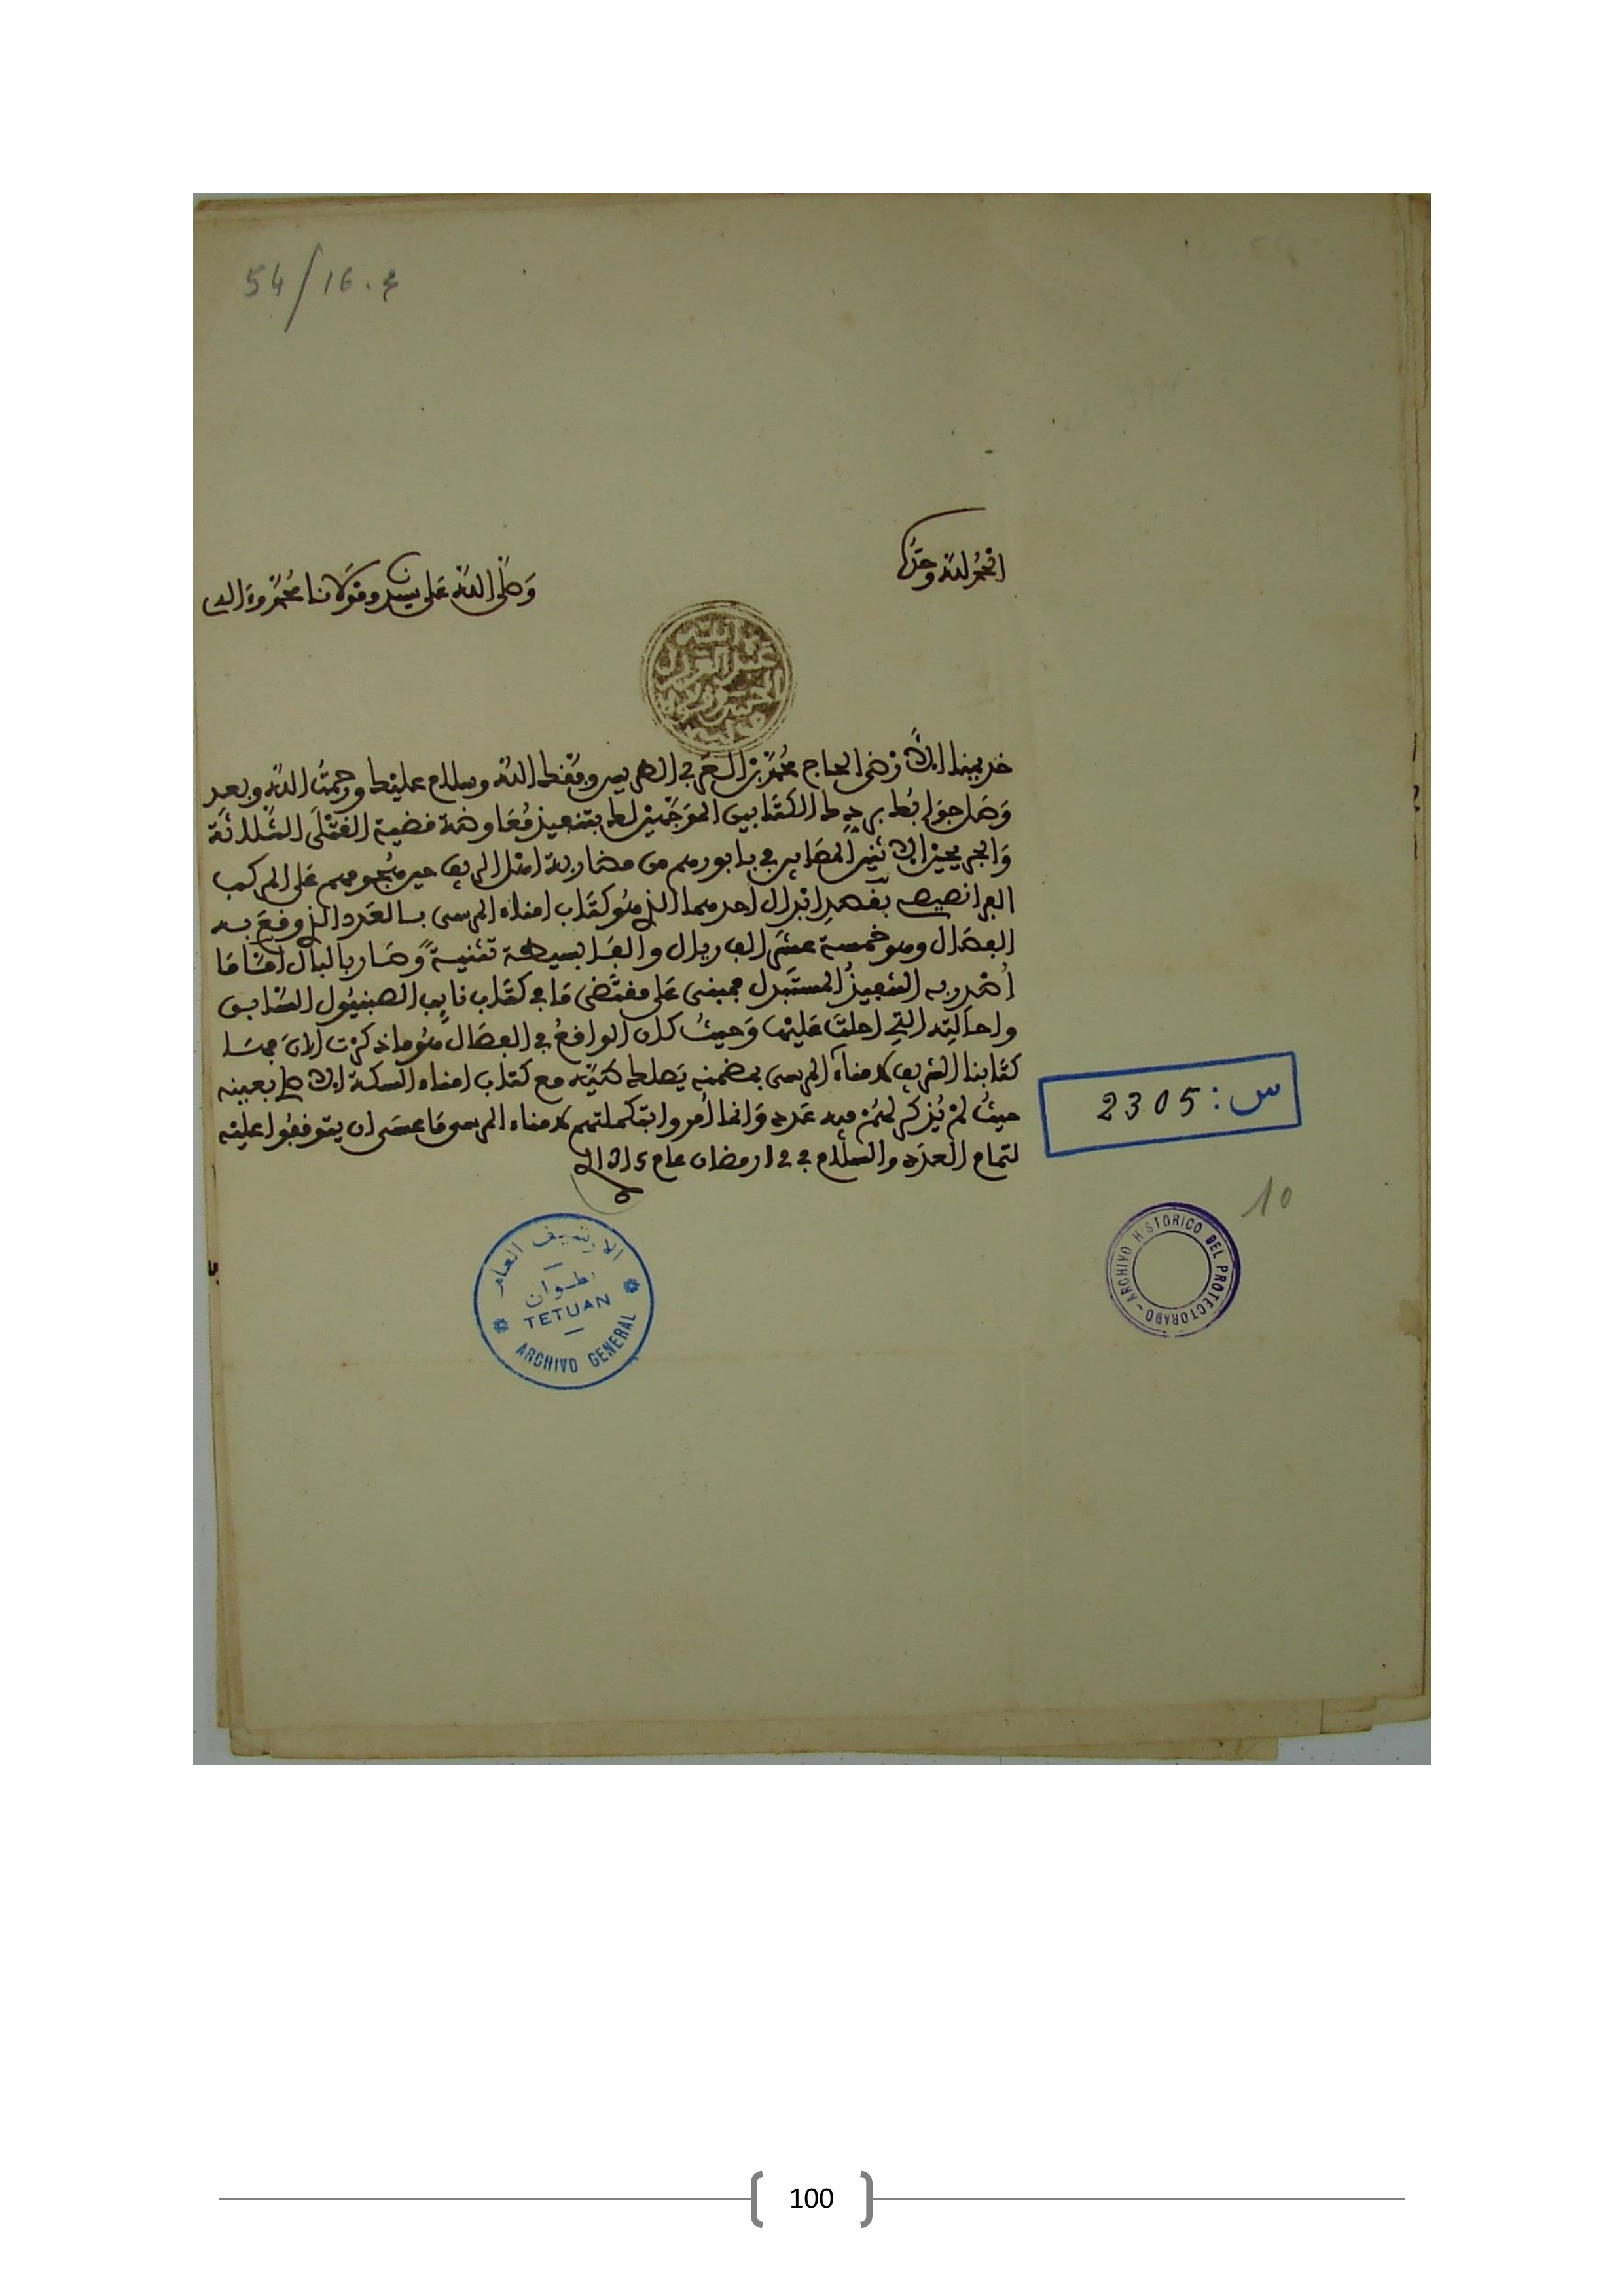 54/16.ع
الحمد لله وحده
وصلى الله على سيدنا ومولانا محمد وءاله
عبد العزيز
خديمنا الأرضى الحاج محمد بن العربي الطريس وفقك الله وسلام عليك ورحمت الله وبعد
وصل جوابك برد الكتابين الموجهين لك بتنفيذ مفاوضة قضية القتلى الثلاثة
والجريحين الاثنين المصابين في بابورهم من مضاربة اهل الريف حين هجومهم على المركب
الفرانصيص بقصد ابدال احدهما الذي هو كتاب امناء المرسى بالعدد الذي وقع به
الفصال وهو خمسة عشر الف ريال والفا بسيطة تثنية وصار بالبال اما ما
أصدر به التنفيذ المستبدل فمبنى على مقتضى ما في كتاب نايب الصبنيول السابق
واحالته التي احلت عليها وحيث كان الواقع في الفصال هو ما ذكرت الان فها
كتابنا الشريف لامناء المرسى بمضمنه يصلك طيه مع كتاب امناء السكة الاول بعينه
حيث لم يذكر لهم فيه عدد وانما أمروا بتكملتهم لامناء المرسى ما عسى ان يتوقفوا عليه
لتمام العدد والسلام في 12 رمضان عام 1315
س: 2305
10
الارشيف العام
تطوان
TETUAN
ARCHIVO GENERAL
ARCHIVO HISTORICO DEL PROTECTORADO
100